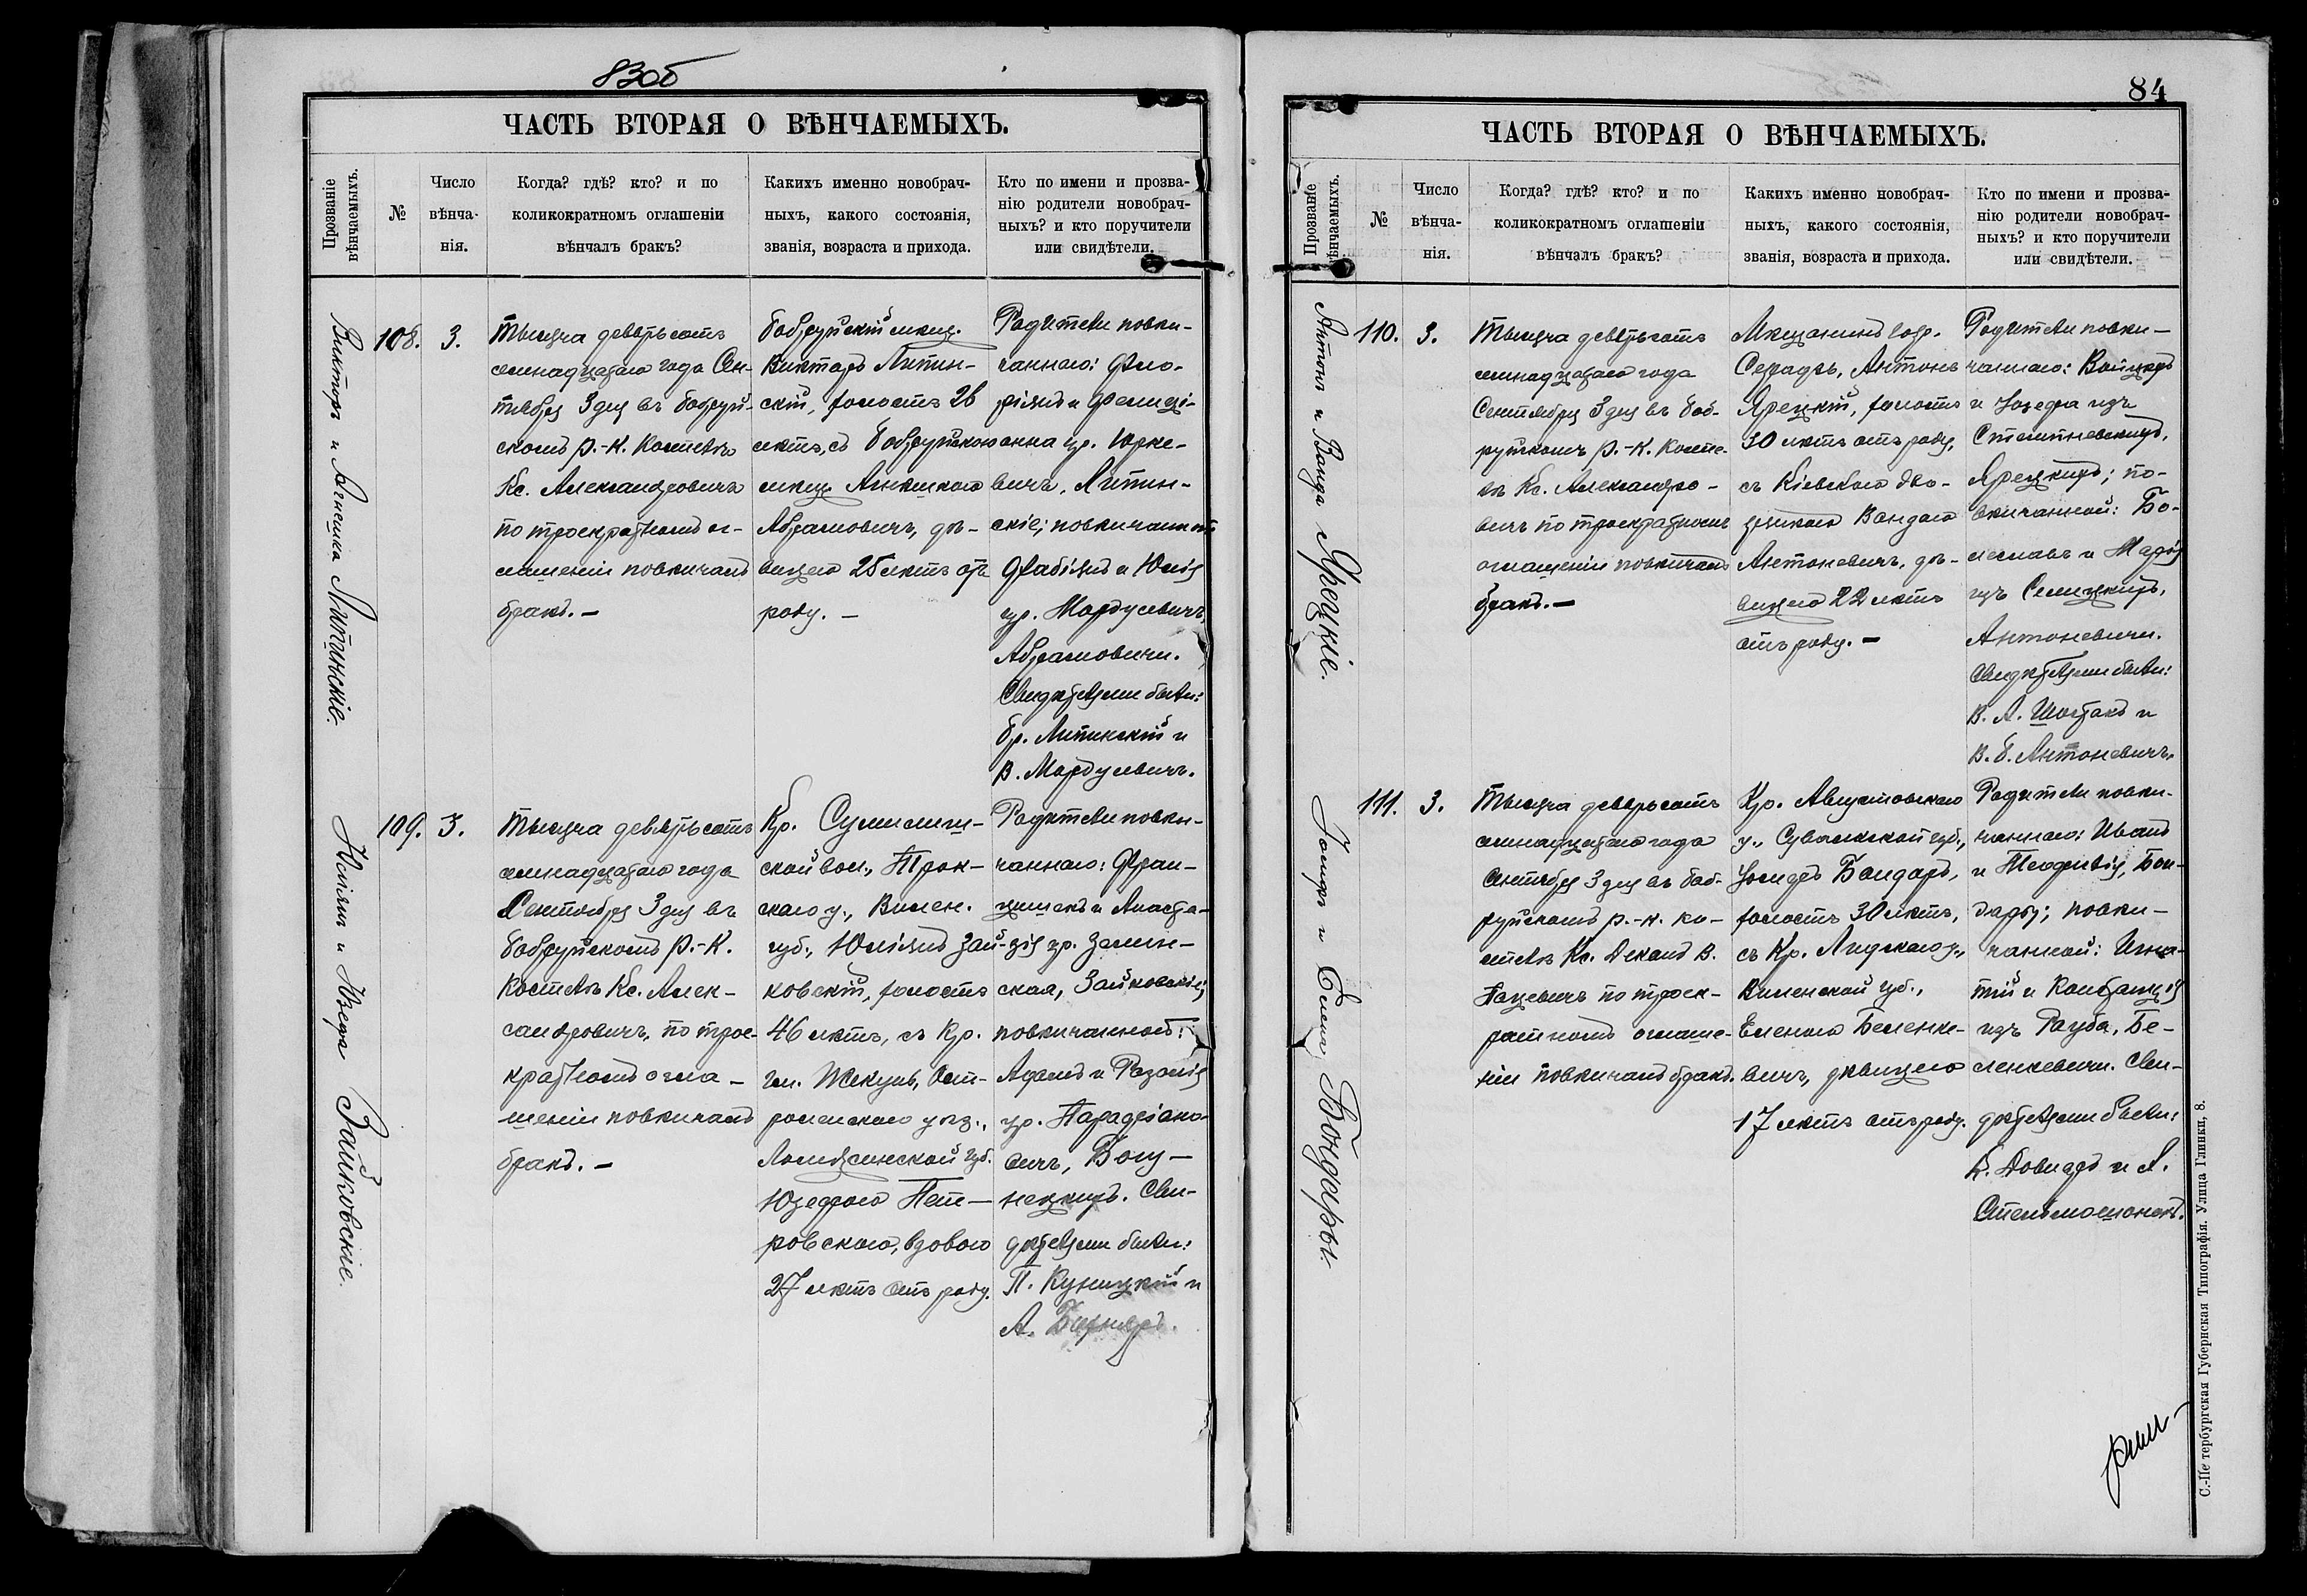 83об
ЧАСТЬ ВТОРАЯ О ВѢНЧАЕМЫХЪ.
Прозваніе
вѣнчаемыхъ.
№
Число
вѣнча-
нія.
Когда? гдѣ? кто? и по
коликократномъ оглашеніи
вѣнчалъ бракъ?
Какихъ именно новобрач-
ныхъ, какого состоянія,
званія, возраста и прихода.
Кто по имени и прозва-
нію родители новобрач-
ныхъ? и кто поручители
или свидѣтели.
Викторъ и Агнешка Липинскіе.
108.
3.
Тысяча девятьсотъ
семнадцатаго года Сен-
тября 3 дня въ Бобруй-
скомъ Р.-К. Костелѣ
Кс. Александровичъ
по троекратномъ ог-
лашеніи повѣнчалъ
бракъ. —
Бобруйскій мѣщ.
Викторъ Липин-
скій, холостъ 26
лѣтъ, съ Бобруйскою
мѣщ.
Абрамовичъ, дѣ-
вицею 25 лѣтъ отъ
роду. —
Родители повѣн-
чаннаго: Фло-
ріянъ и Фелиці-
анна ур. Юрке-
вичъ, Липин-
скіе; повѣнчанной
Фабіянъ и Юлія
ур. Мордусевичъ,
Абрамовичи.
Свидѣтелями были:
Бр. Липинскій и
В. Мордусевичъ.
Юліянъ и Юзефа Зайковскіе.
109.
3.
Тысяча девятьсотъ
семнадцатаго года
Сентября 3 дня въ
Бобруйскомъ Р.-К.
Костелѣ Кс. Алек-
сандровичъ, по трое-
кратномъ огла-
шеніи повѣнчалъ
бракъ. —
Кр. Сумилиш-
ской вол., Трок-
скаго у., Вилен.
губ., Юліянъ Зай-
ковскій, холостъ
46 лѣтъ, съ Кр.
гм. Жекунь, Ост-
роленскаго уѣз.,
Ломжинской губ.
Юзефою Пет-
ровскою, вдовою
27 лѣтъ отъ роду.
Родители повѣн-
чаннаго: Фран-
цишекъ и Анаста-
зія ур. Залин-
ская, Зайковскіе;
повѣнчанной:
Адамъ и Розалія
ур.
Сви-
дѣтелями были:
П. Куницкій и
А.
84
ЧАСТЬ ВТОРАЯ О ВѢНЧАЕМЫХЪ.
Прозваніе
вѣнчаемыхъ.
№
Число
вѣнча-
нія.
Когда? гдѣ? кто? и по
коликократномъ оглашеніи
вѣнчалъ бракъ?
Какихъ именно новобрач-
ныхъ, какого состоянія,
званія, возраста и прихода.
Кто по имени и прозва-
нію родители новобрач-
ныхъ? и кто поручители
или свидѣтели.
Антонъ и Ванда Ярецкіе.
110.
3.
Тысяча девятьсотъ
семнадцатаго года
Сентября 3 дня въ Боб-
руйскомъ Р.-К. Косте-
лѣ Кс. Александро-
вичъ по троекратномъ
оглашеніи повѣнчалъ
бракъ. —
Мѣщанинъ гор.
Серадзь, Антонъ
Ярецкій, холостъ
30 лѣтъ отъ роду,
съ Кіевскою дво-
рянкою Вандою
Антоневичъ, дѣ-
вицею 22 лѣтъ
отъ роду. —
Родители повѣн-
чаннаго: Войцехъ
и Юзефа изъ
Ярецкихъ; по-
вѣнчанной: Бо-
леславъ и Марія
изъ Селицкихъ,
Антоневичи.
Свидѣтелями были:
В. А. Шостакъ и
В. Б. Антоневичъ.
Іосифъ и Елена Бондары.
111.
3.
Тысяча девятьсотъ
семнадцатаго года
Сентября 3 дня въ Боб-
руйскомъ Р.-К. Ко-
стелѣ Кс. Деканъ В.
Пацевичъ по троек-
ратномъ оглаше-
ніи повѣнчалъ бракъ.
Кр. Августовскаго
у., Сувалкской губ.,
Іосифъ Бондаръ,
холостъ 30 лѣтъ,
съ Кр. Лидскаго у.,
Виленской губ.,
Еленою Беленке-
вичъ, дѣвицею
17 лѣтъ отъ роду.
Родители повѣн-
чаннаго: Иванъ
и Теофилія, Бон-
дары; повѣн-
чанной: Игна-
тій и Констанція
изъ Рауба, Бе-
ленкевичи. Сви-
дѣтелями были:
К. Довнаръ и А.
Стельмашонокъ.
С.-Петербургская Губернская Типографія. Улица Глинки, 8.